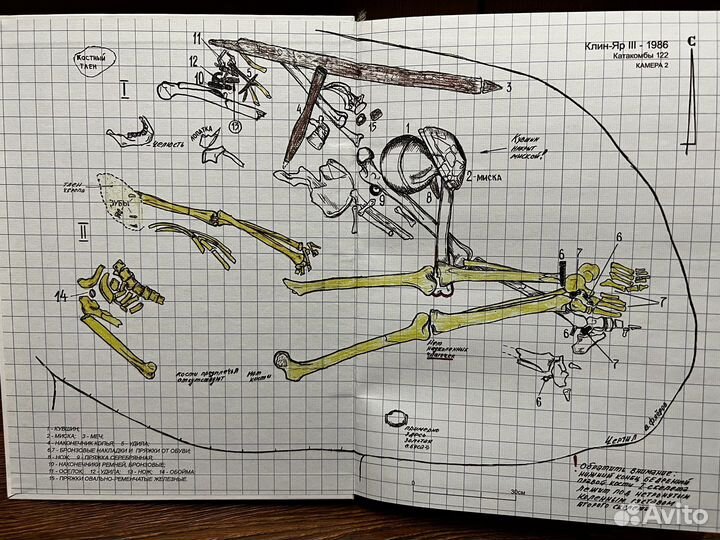 Костный
тлен
I
11
12
10
5
13
4
3
15
1
9
8
2-МИСКА
Кувшин
накрыт
миской!
Клин-Яр III - 1986
Катакомбы 122
КАМЕРА 2
С
челюсть
лопатка
тлен
черепа
ЗУБЫ
II
14
6
7
6
7
7
6
6
кости предплечья
отсутствуют
Нет
кости
Нет
коленных
чашечек
примерно
здесь
золотая
Чертил
1 - КУВШИН;
2 - МИСКА; 3 - МЕЧ;
4 - НАКОНЕЧНИК КОПЬЯ; 5 - УДИЛА;
6,7 - БРОНЗОВЫЕ НАКЛАДКИ И ПРЯЖКИ ОТ ОБУВИ;
8 - НОЖ; 9 - ПРЯЖКА СЕРЕБРЯННАЯ;
10 - НАКОНЕЧНИКИ РЕМНЕЙ, БРОНЗОВЫЕ;
11 - ОСЕЛОК; 12 - УДИЛА; 13 - НОЖ; 14 - ОБОЙМА;
15 - ПРЯЖКИ ОВАЛЬНО-РЕМЕНЧАТЫЕ ЖЕЛЕЗНЫЕ.
0
30см
! Обратить внимание:
нижний конец бедренной
правой кости I скелета
лежит под нетронутым
коленным суставом
второго
Avito